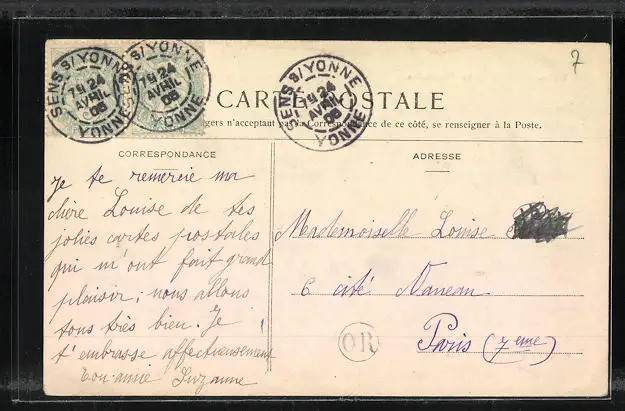 7
SENS S/YONNE
7H 24
AVRIL
06
YONNE
SENS S/YONNE
7H 24
AVRIL
06
YONNE
SENS S/YONNE
7H 24
AVRIL
06
YONNE
CARTE POSTALE
pays. Correspondance de ce côté, se renseigner à la Poste.
CORRESPONDANCE
Je te remercie ma
chère Louise de tes
jolies cartes postales
qui m'ont fait grand
plaisir; nous allons
tous très bien. Je
t'embrasse affectueusement
Ton amie Suzanne
ADRESSE
Mademoiselle Louise
6 cité Vaneau
Paris (7eme)
OR